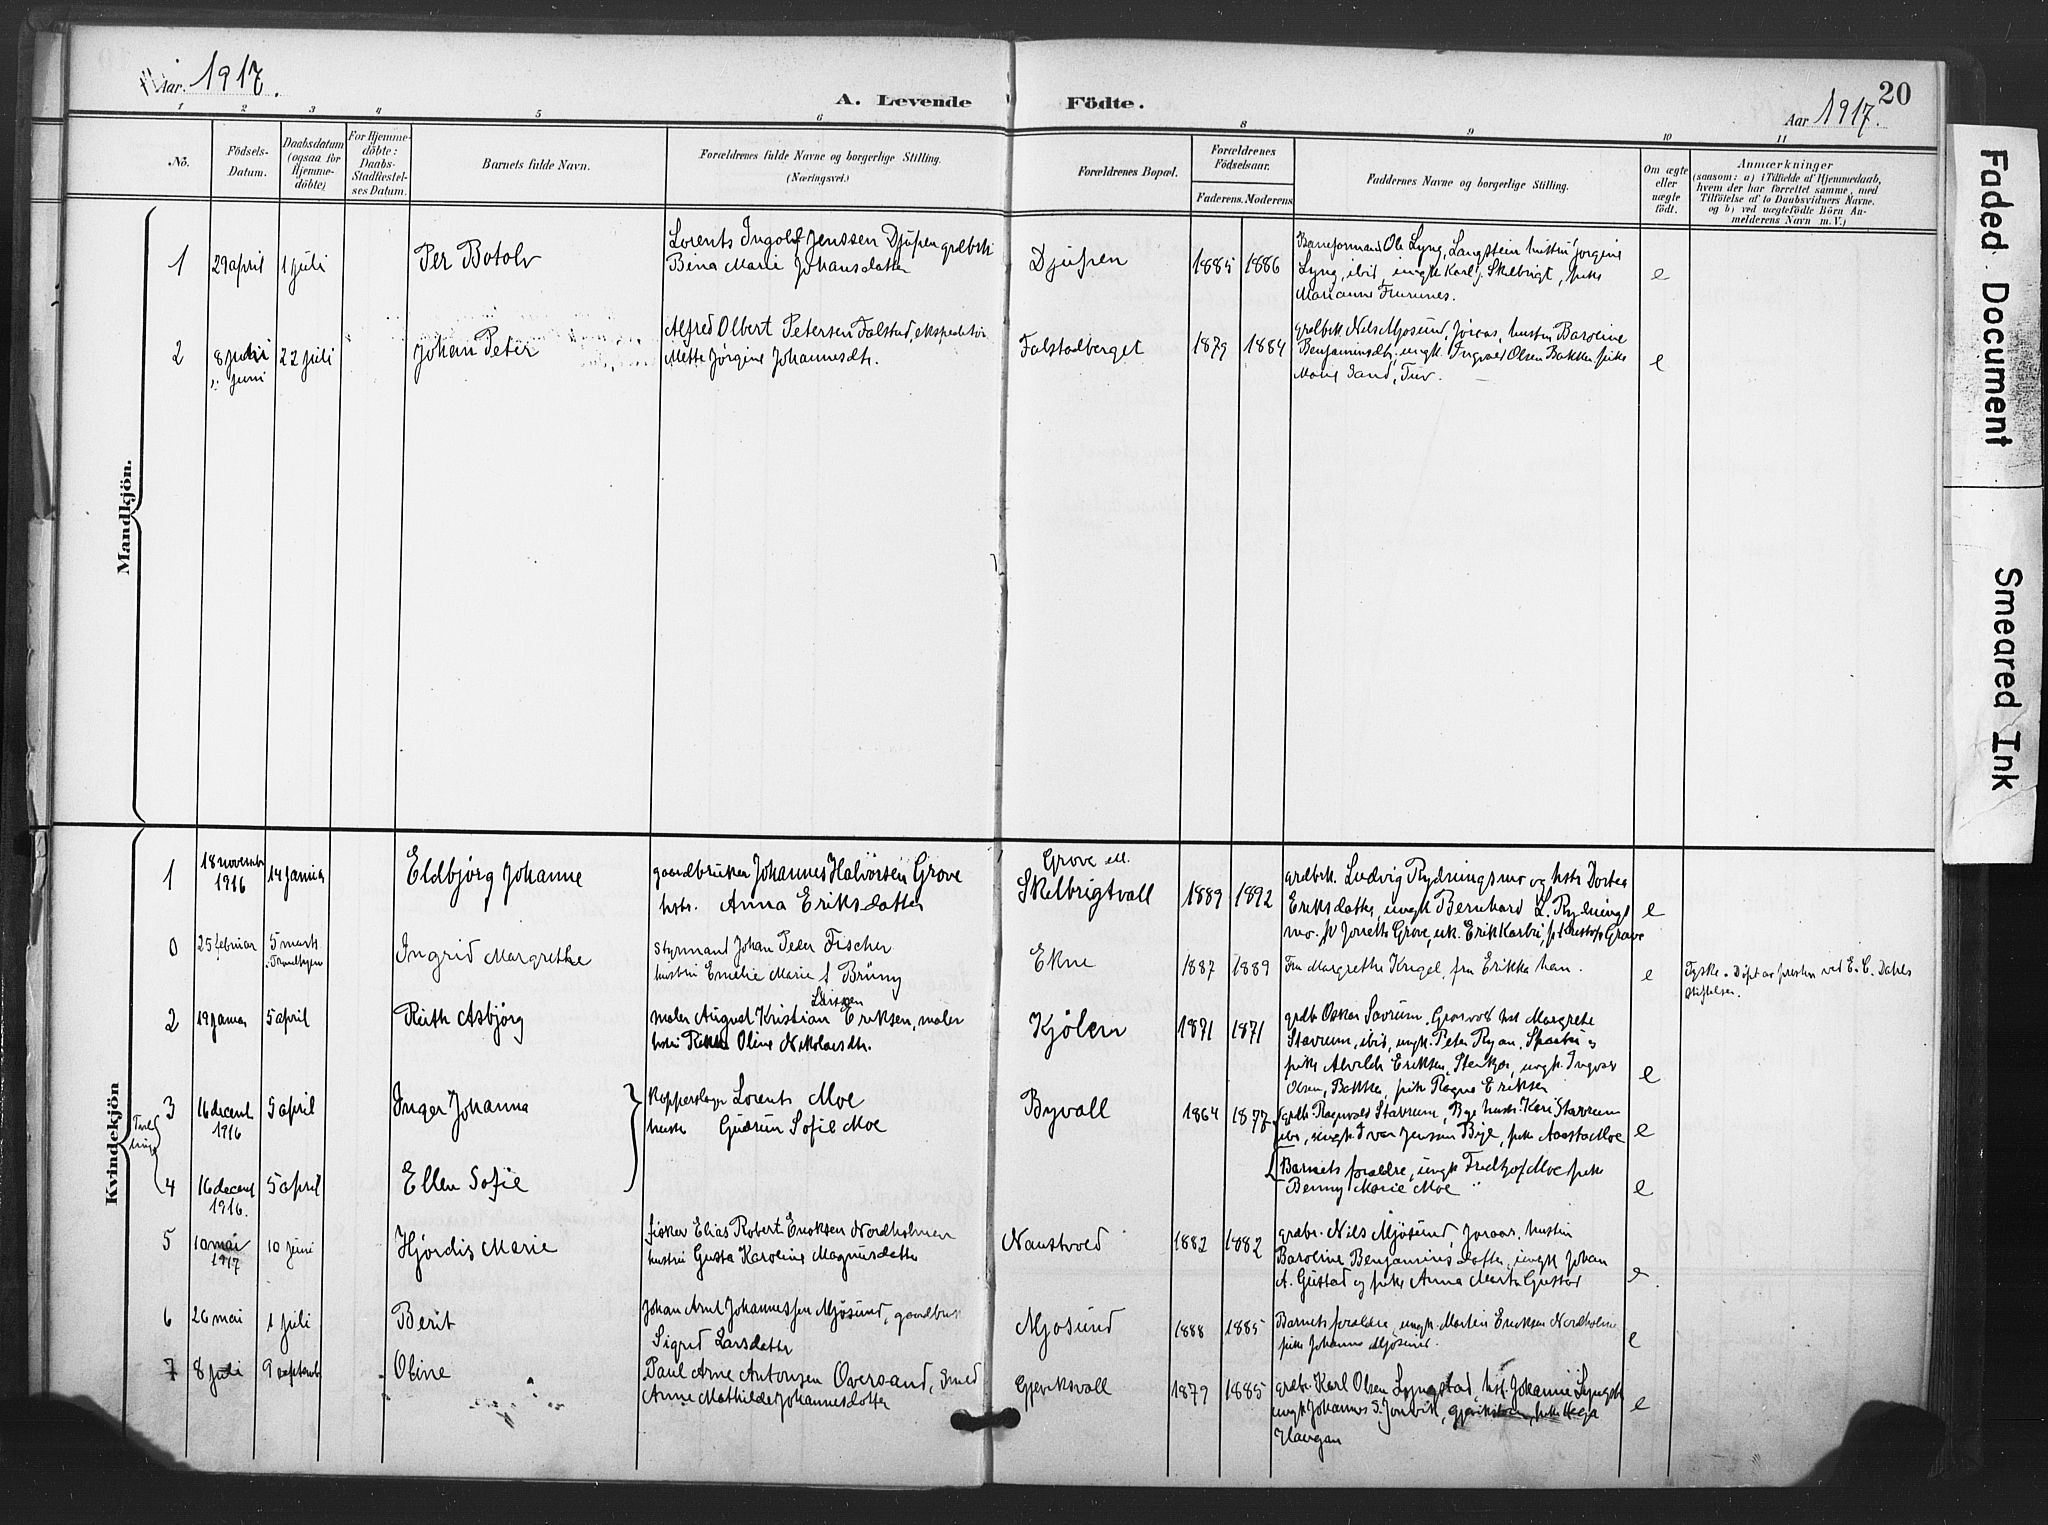 Aar. 1917.
A. Levende Födte.
Aar 1917.
20
1 2 3 4 5 6 8 9 10 11
No.
Födsels-Datum.
Daabsdatum (ogsaa for Hjemme-döbte)
For Hjemme-döbte: Daabs-Stadfæstel-ses Datum.
Barnets fulde Navn.
Forældrenes fulde Navne og borgerlige Stilling.
(Næringsvei.)
Forældrenes Bopæl.
Forældrenes Födselsaar.
Faderens. Moderens
Faddernes Navne og borgerlige Stilling.
Om ægte eller uægte födt.
Anmærkninger
(saasom: a) i Tilfælde af Hjemmedaab,
hvem der har forrettet samme, med
Tilföielse af to Daabsvidners Navne.
og b) ved uægtefödte Börn An-
melderens Navn m. V.)
Mandkjön.
1 29 april 1 juli Per Botolv
Lorents Ingolf Jenssen Djupen grdbrk
Bina Marie Johansdatter
Djupen 1885 1886
Baneformand Ole Lyng, Langstein hustru Jörgine
Lyng, ibid, ungk Karl J. Skelbrigt, pike
Marianne e
2 8 juni 22 juli Johan Peter
Alfred Olbert Petersen Falstad, ekspeditör
Mette Jörgine Johannesdtr.
Falstadberget 1879 1884
grdbrk Nils Mjosund, hustru Baroline
Benjaminsdtr. ungk. Ingvald Olsen Bakken pike
Marie Sand, e
Kvindekjön
1 18 novemb 1916 14 januar Eldbjörg Johanne
gaardbruker Johannes Halvorsen Grove
hstr. Anna Eriksdatter
Grove u.
Skelbrigtvall 1889 1892
grdbrk. Ludvig Rydningsmo og hstr Dortea
Eriksdatter, ungk Bernhard L. Rydnings
mo. Grove, uk. Erik Karbö, e
0 25 februar 5 mars Trondhjem Ingrid Margrethe
Styrmand Johan Peder Fischer
hustru Emelie Marie f Brüny
Ekne 1887 1889
Fru Margrethe Krugel, fru Erikka e
Tyske. Döpt av presten ved E. C. Dahls
stiftelse.
2 19 januar 5 april Ruth Asbjörg
Larssen
maler August Kristian Eriksen, maler
hstru Oline Nikolaisdtr.
Kjölen 1871 1871
grdb Oskar Stavrum, hst Margrete
Stavrum, ibid, ungk. Peter Ryan, Sparbu og
pike Alvilde Eriksen, Stenkjær, ungk. Ingvar
Olsen, Bakke, pike Ragna Eriksen e
Tvillinger
3 16 decemb 1916 5 april Inger Johanna
Kopperslager Lorents Moe
hustr Gudrun Sofie Moe
Byvall 1864 1877
grdb Ragnvald Stavrum, Bye hustr. Kari Stavrum
ibd, ungk Ivar Jensen Bye, pike Aasta Moe e
4 16 decemb 1916. 5 april Ellen Sofie
Barnets foraldre, ungk Fridtjof Moe pike
Benny Marie Moe e
5 10 mai 1917 10 juni Hjördis Marie
fisker Elias Robert Ericksen Nordholmen
hustru Gusta Karoline Magnusdatter
Naustvold 1882 1882
grdbr. Nils Mjösund, hustru
Baroline Benjaminsdatter, ungk Johan
A. Gustad og pike Anna Marta Gustad e
6 26 mai 1 juli Berit
Johan Arnt Johannessen Mjösund, gaardbruk
Sigrid Larsdatter
Mjosund 1888 1885
Barnets foraldre, ungk. Martin Ericksen Nordholm
pike Johanna Mjösund e
7 8 juli 9 septemb Oline
Paul Arne Antonsen Oversand, Smed
Anne Mathilde Johannesdatter
Gjeviksvall 1879 1885
grdbr. Karl Olsen Lyngstad, hst. Johanne Lyngst
ungk Johannes S. Jonvik, pike Helga
Haugan e
Faded Document
Smeared Ink